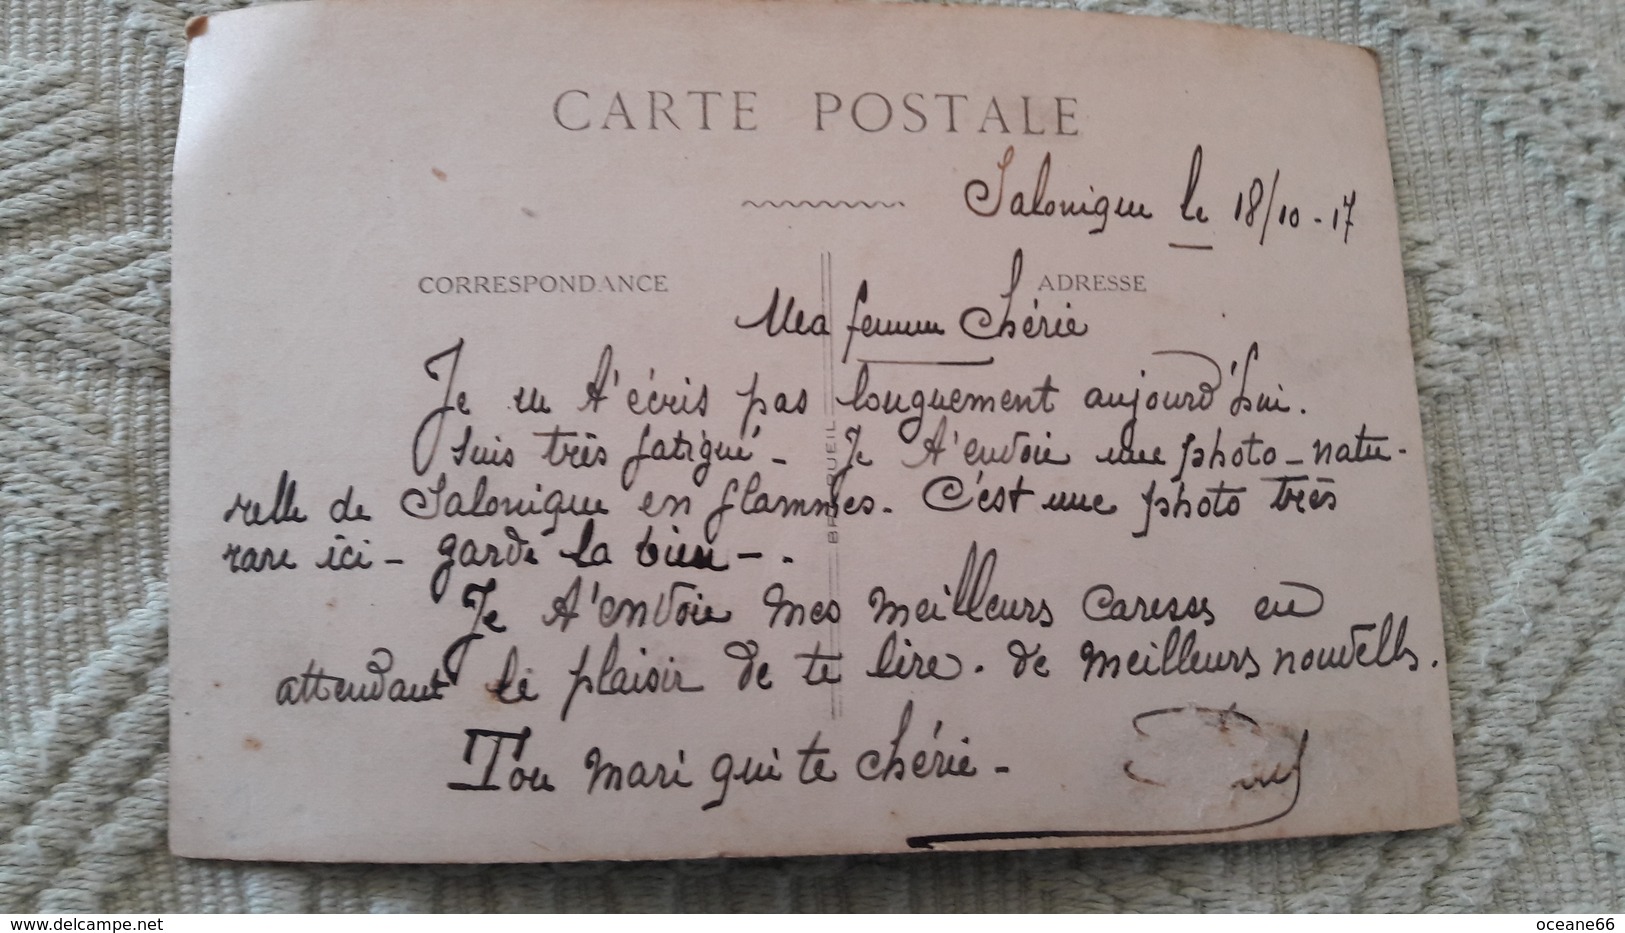 CARTE POSTALE
Salonique le 18/10-17
CORRESPONDANCE
ADRESSE
Ma femme Chérie
Je ne t'écris pas longuement aujourd'hui.
Suis très fatigué - Je t'envoie une photo-natu-
relle de Salonique en flammes. C'est une photo très
rare ici - garde la bien -.
Je t'envoie mes meilleurs caresses en
attendant le plaisir de te lire. de meilleurs nouvelles.
Ton mari qui te chérie -
www.delcampe.net
oceane66